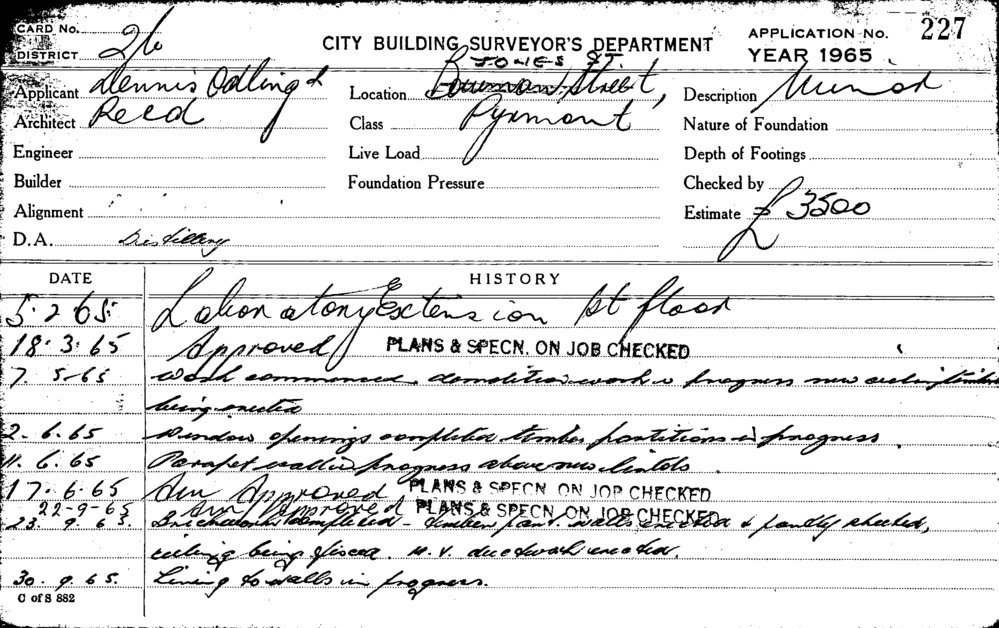 CARD No.
DISTRICT 26
CITY BUILDING SURVEYOR'S DEPARTMENT
APPLICATION No. 227
YEAR 1965
JONES ST.
Applicant Dennis Odling &
Location Bowman Street,
Description Minor
Architect Reed
Class Pyrmont
Nature of Foundation
Engineer
Live Load
Depth of Footings
Builder
Foundation Pressure
Checked by
Alignment
Estimate £ 3500
D.A. Distillery
DATE HISTORY
5.2.65. Laboratory Extension 1st floor
18.3.65 Approved PLANS & SPECN. ON JOB CHECKED
7.5.65 Work commenced, demolition work in progress new ceiling timbers
being erected
2.6.65 Window openings completed timber partitions in progress.
11.6.65 Parapet walls in progress above new lintels.
17.6.65 Am Approved PLANS & SPECN. ON JOB CHECKED
22-9-65 Am Approved PLANS & SPECN. ON JOB CHECKED
23.9.65. Brickwork completed - timber part. walls erected & partly sheeted,
ceiling being fixed. M.V. ductwork erected.
30.9.65. Lining to walls in progress.
C of S 882